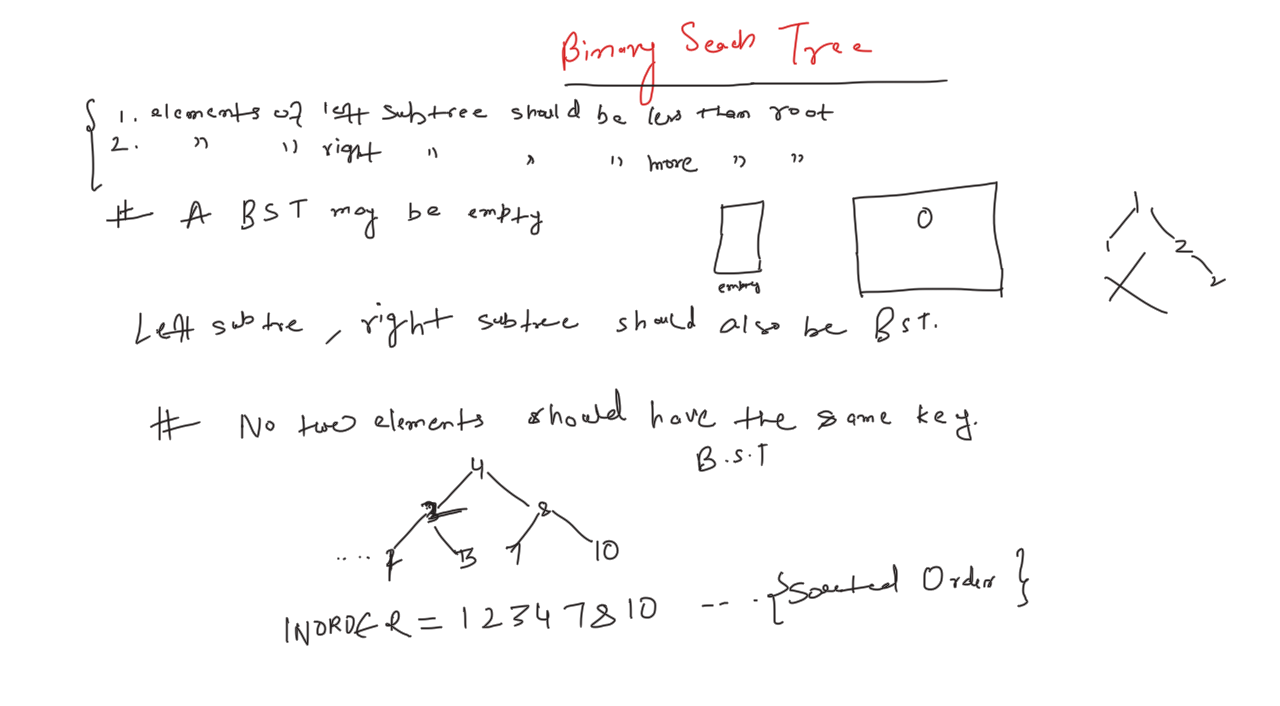 Binary Seach Tree
1. elements of left subtree should be less than root
2. " " right " " " more " "
# A BST may be empty
0
empty
1
1 2
2
Left subtre, right subtree should also be BST.
# No two elements should have the same key.
B.S.T
4
8
.... 3 7 10
INORDER = 1 2 3 4 7 8 10 -- . {Soreted Order}